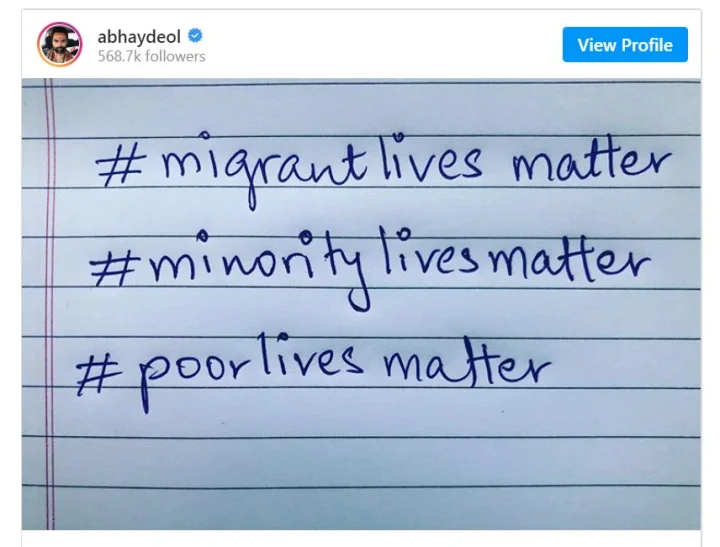 abhaydeol
568.7k followers
View Profile
# migrant lives matter
# minority lives matter
# poor lives matter